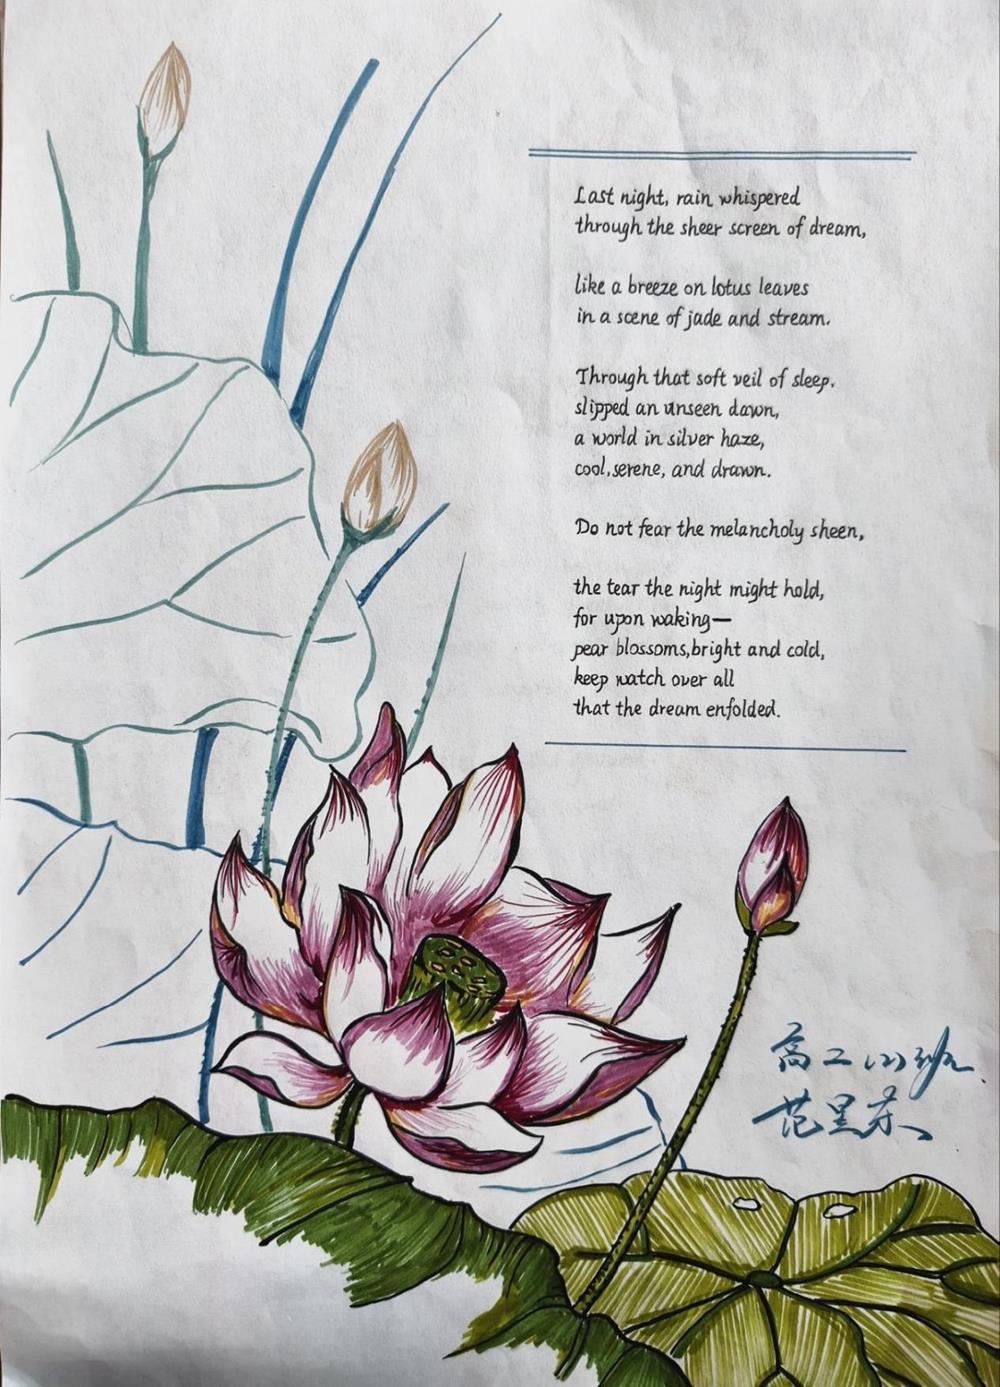 Last night, rain whispered
through the sheer screen of dream,
like a breeze on lotus leaves
in a scene of jade and stream.
Through that soft veil of sleep,
slipped an unseen dawn,
a world in silver haze,
cool, serene, and drawn.
Do not fear the melancholy sheen,
the tear the night might hold,
for upon waking—
pear blossoms, bright and cold,
keep watch over all
that the dream enfolded.
高二(1)班
范